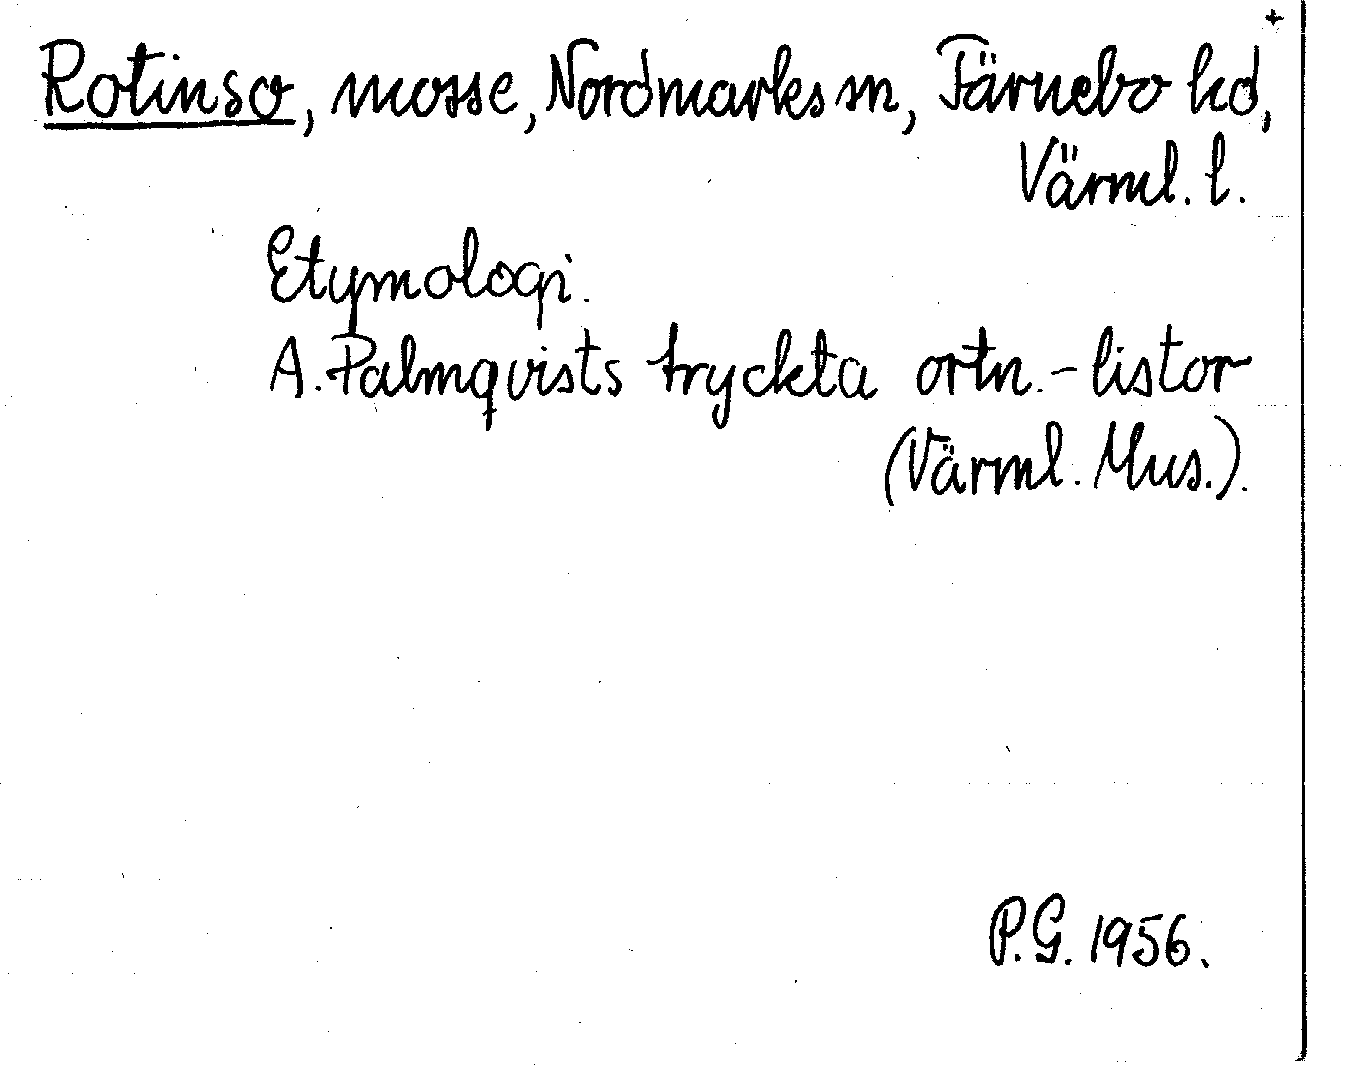 +
Rotinso, mosse, Nordmarks sn, Färnebo hd,
Värml. l.
Etymologi.
A. Palmqvists tryckta ortn.-listor
(Värml. Mus.).
P.G. 1956.